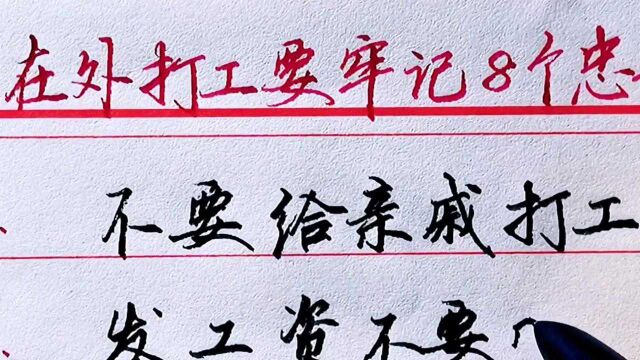 在外打工要牢记8个忠
不要给亲戚打工
发工资不要